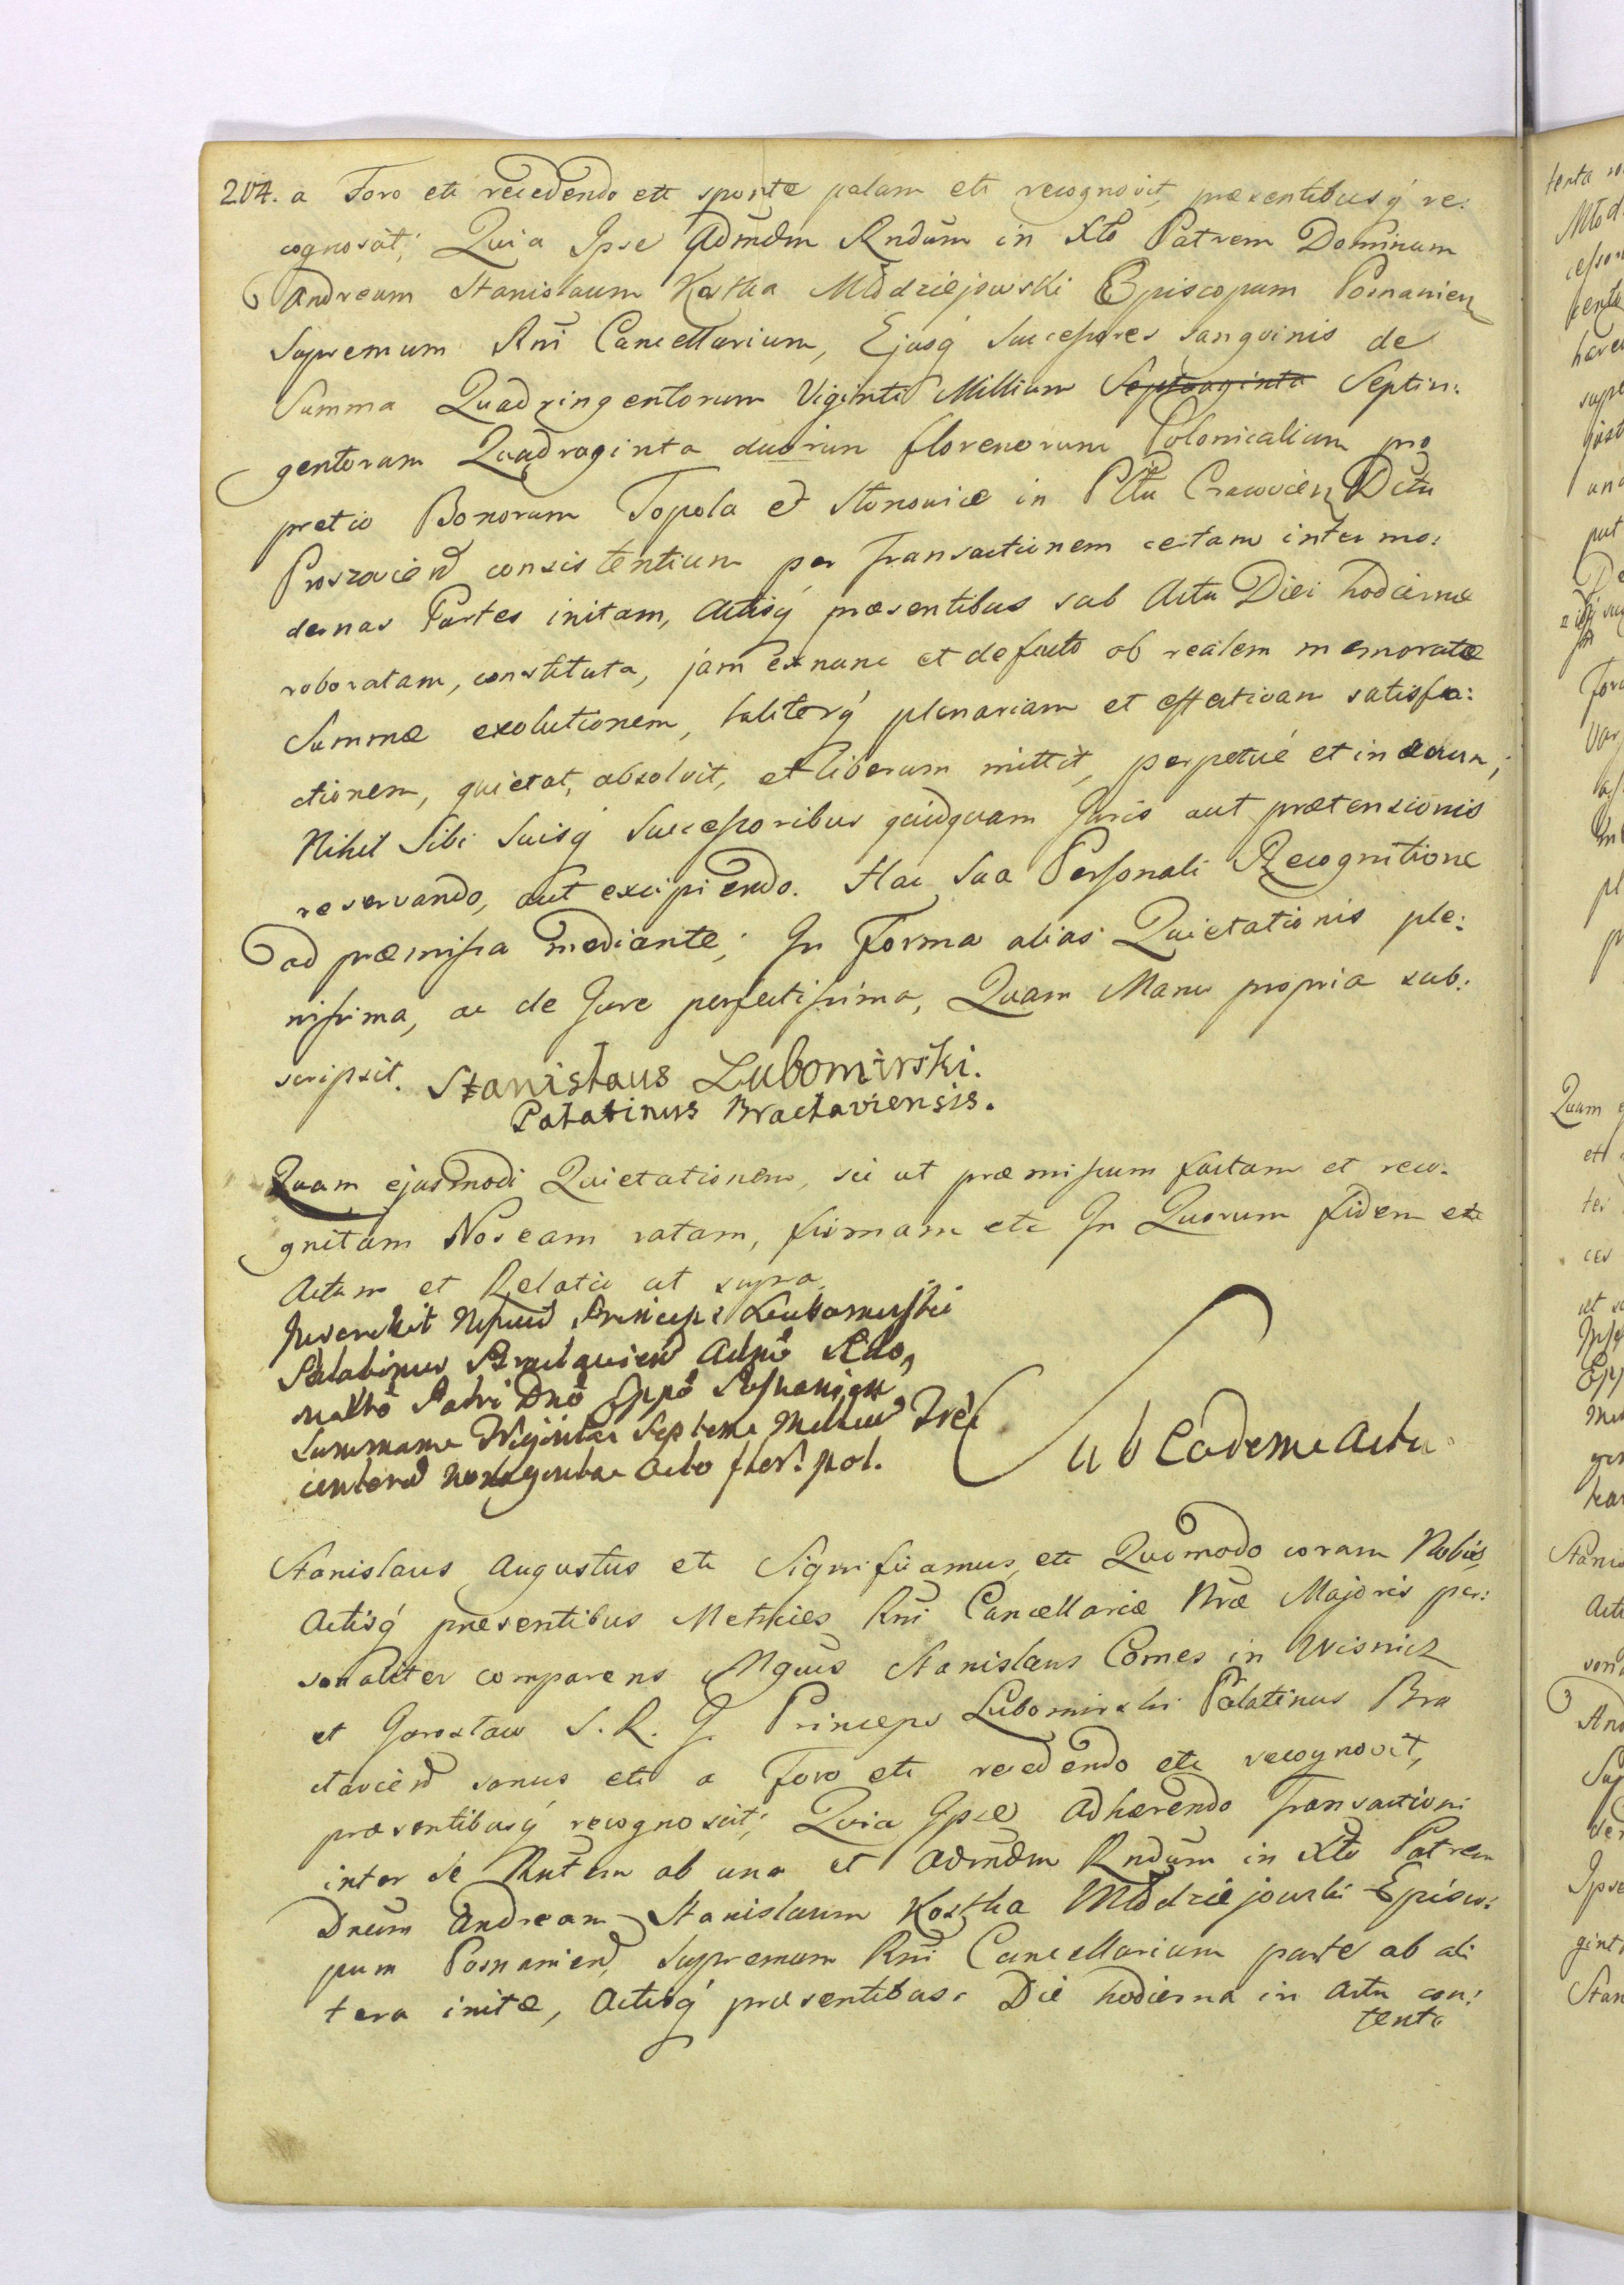 204. a Foro etc recedendo etc sponte palam etc recognovit, præsentibusq́ re:
cognoscit; Quia Ipse Admdm Rndum in Xto Patrem Dominum
Andream Stanislaum Kostka Młodziejowski Episcopum Posnanien
Supremum Rni Cancellarium, Ejusq́ Successores sanguinis de
Summa Quadringentorum Viginti Millium Septuaginta Septin:
gentorum Quadraginta duorum florenorum Polonicalium pro
pretio Bonorum Topola et Stonowice in Pttu Cracovien Dctu
Proszovien consistentium per Transactionem certam inter mo:
dernas Partes initam, Actisq́ præsentibus sub Actu Diei hodiernæ
roboratam, constituta, jam ex nunc et de facto ob realem memoratæ
Summæ exolutionem, taliterq́ plenariam et effectivam satisfa:
ctionem, quietat, absolvit, et liberum mittit, perpetué et in ævum;
Nihil Sibi Suisq́ Successoribus quidquam Juris aut prætensionis
reservando, aut excipiendo. Hac Sua Personali Recognitione
ad præmissa mediante; In Forma alias Quietationis ple:
nissima, ac de Jure perfectissima, Quam Manu propria sub:
scripsit. Stanislaus Lubomirski.
Palatinus Bractaviensis.
Quam ejusmodi Quietationem, sic ut præmissum factam et reco:
gnitam Nos eam ratam, firmam etc In Quorum fidem etc
Actum et Relatio ut supra.
Inscribit Princeps Lubomirski
Palatinus Braclavien Admo Rdo,
in Xto Patri Dno Eppo Posnanien
Summam Viginti Septem Millium Tre
centorum Nonaginta Octo flor: pol.
Sub Eodem Actu
Stanislaus Augustus etc Significamus, etc Quomodo coram Nobis,
Actisq́ præsentibus Metrices Rni Cancellariæ Nræ Majoris per:
sonaliter comparens Mgnus Stanislaus Comes in Wisnicz
et Jarosław S. R. J. Princeps Lubomirski Palatinus Bra
ctavien sanus etc a Foro etc recedendo etc recognovit,
præsentibusq́ recognoscit; Quia Ipse adhærendo Transactioni
inter Se Rntem ab una et Admdm Rndum in Xto Patrem
Dnum Andream Stanislaum Kostka Młodziejowski Episco:
pum Posnanien, Supremum Rni Cancellarium parte ab al:
tera initæ, Actisq́ præsentibus Die hodierna in Actu con:
tenta